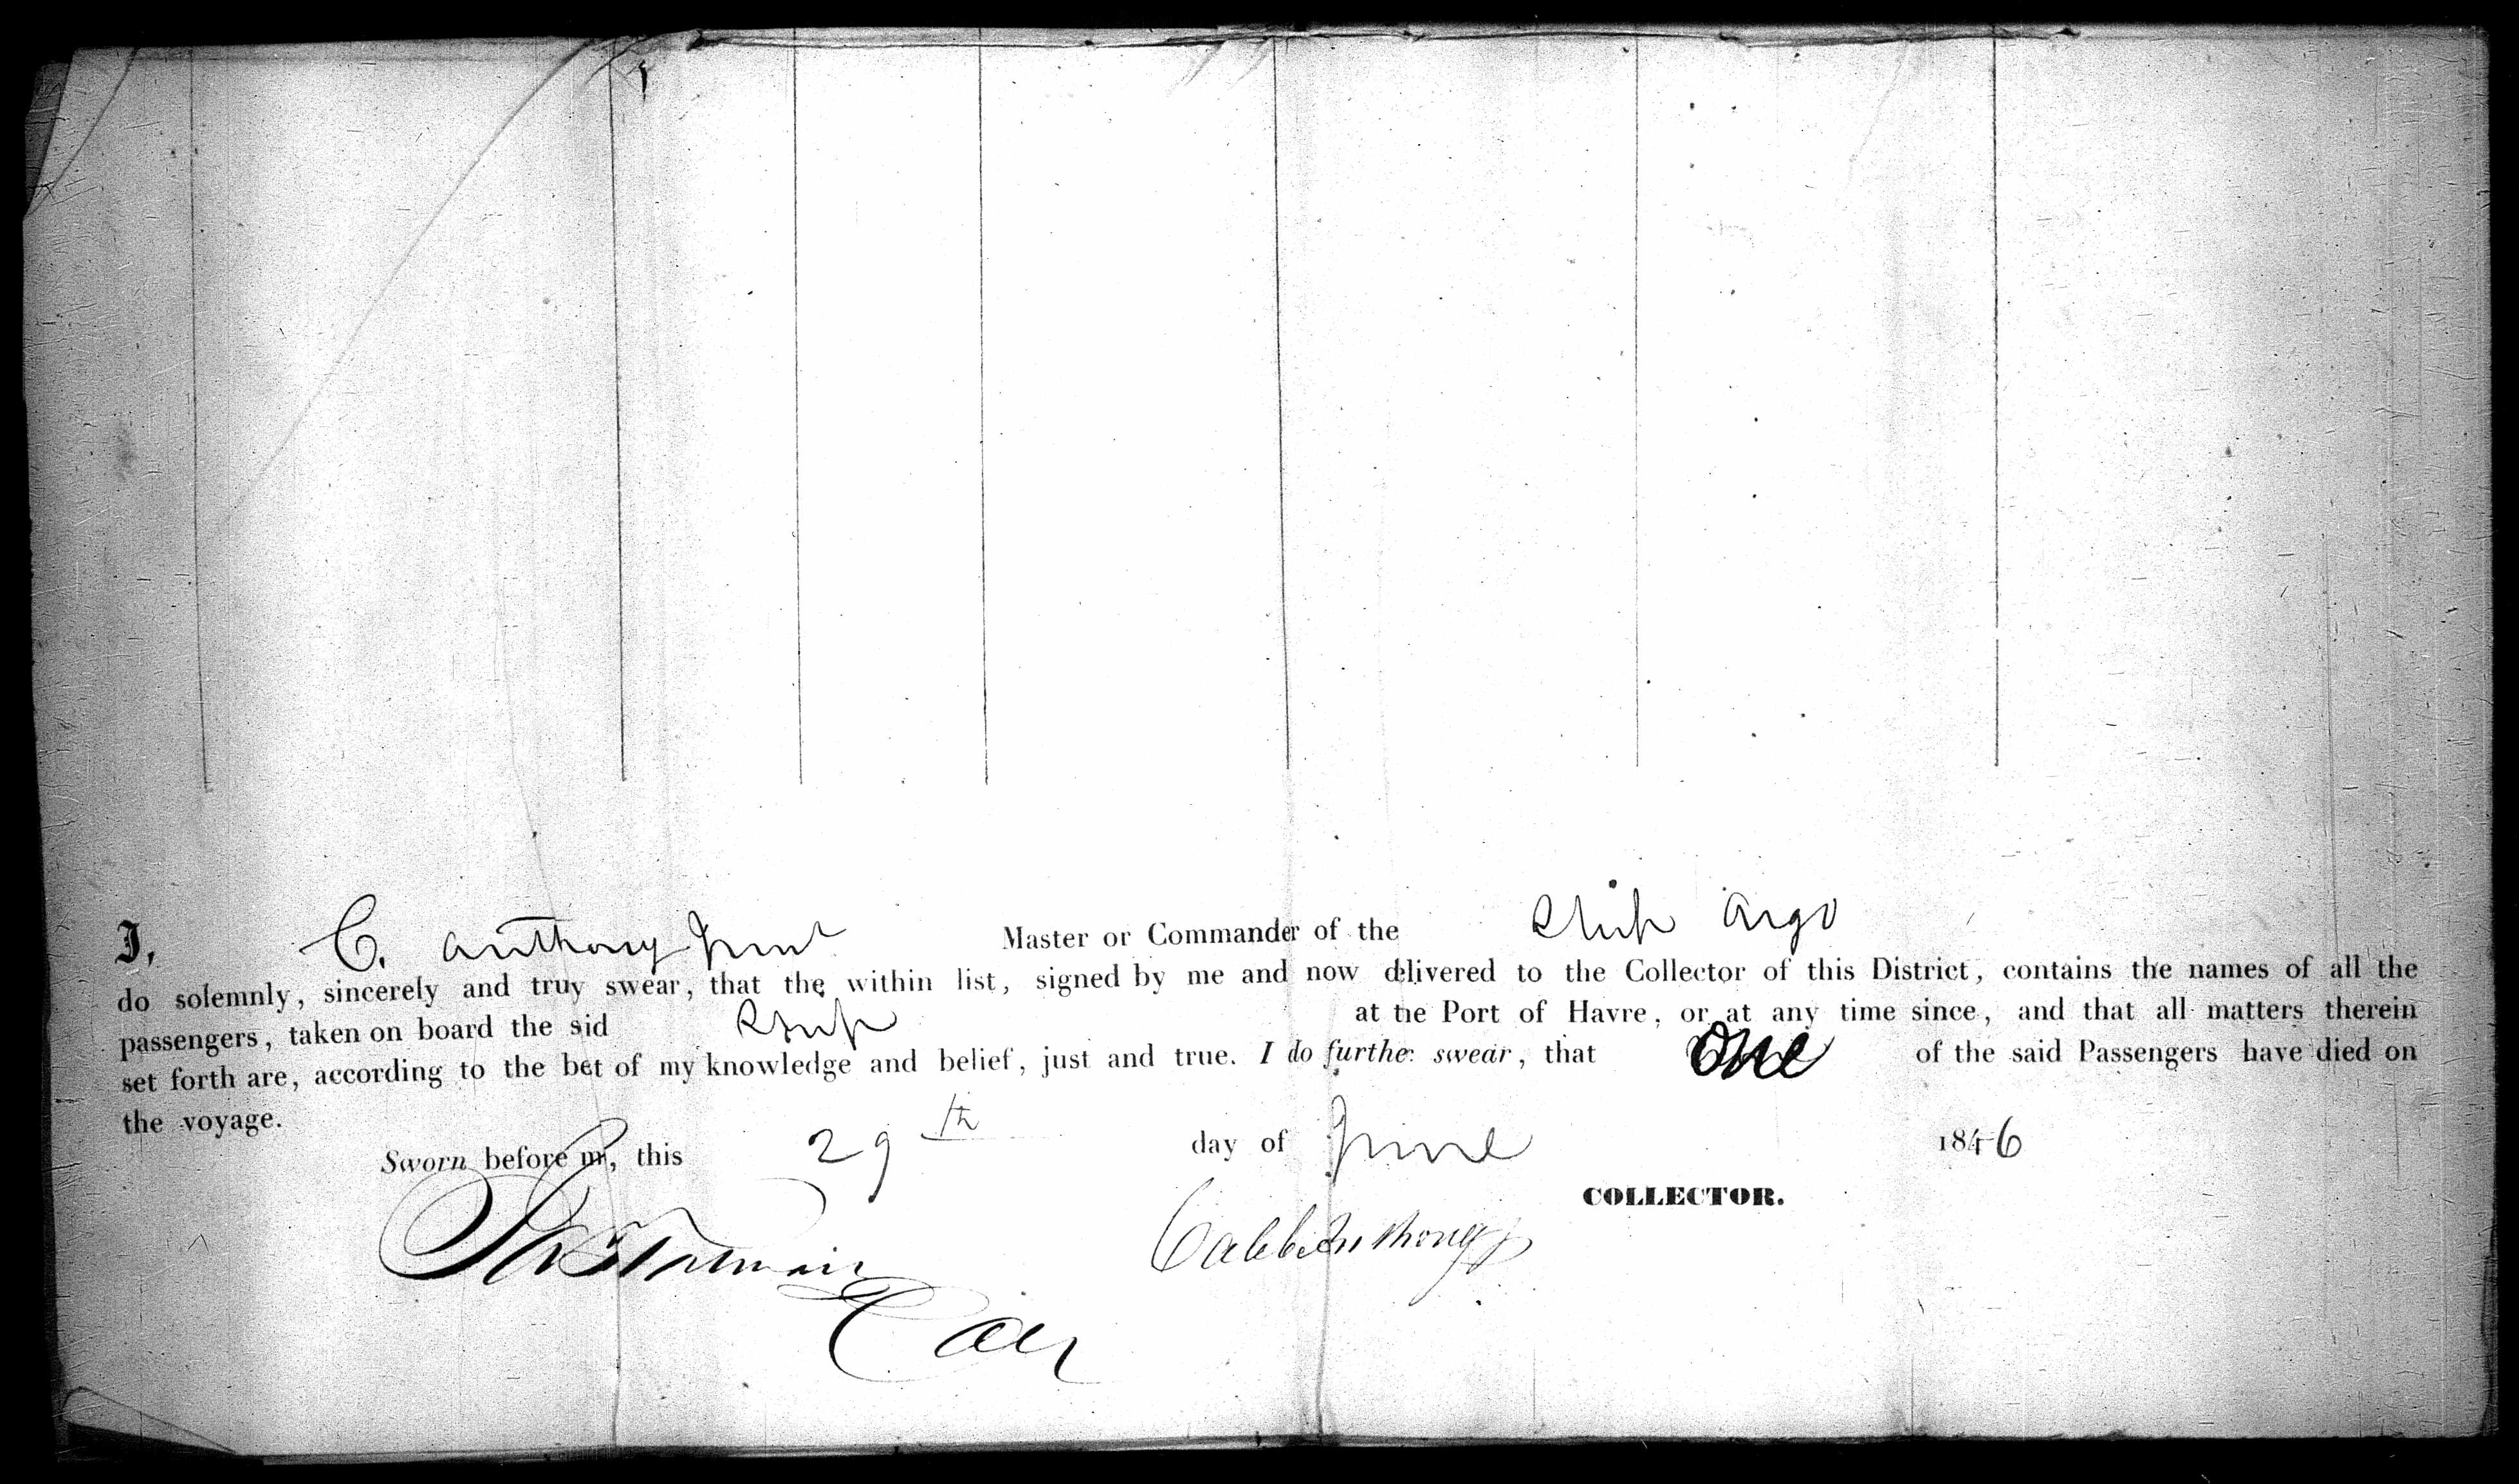 I, C. Anthony Junr Master or Commander of the Ship Argo
do solemnly, sincerely and truy swear, that the within list, signed by me and now delivered to the Collector of this District, contains the names of all the
passengers, taken on board the sid Ship at tie Port of Havre, or at any time since, and that all matters therein
set forth are, according to the bet of my knowledge and belief, just and true. I do further swear, that One of the said Passengers have died on
the voyage.
Sworn before m, this 29th day of June 1846
COLLECTOR.
Caleb Anthony Jr